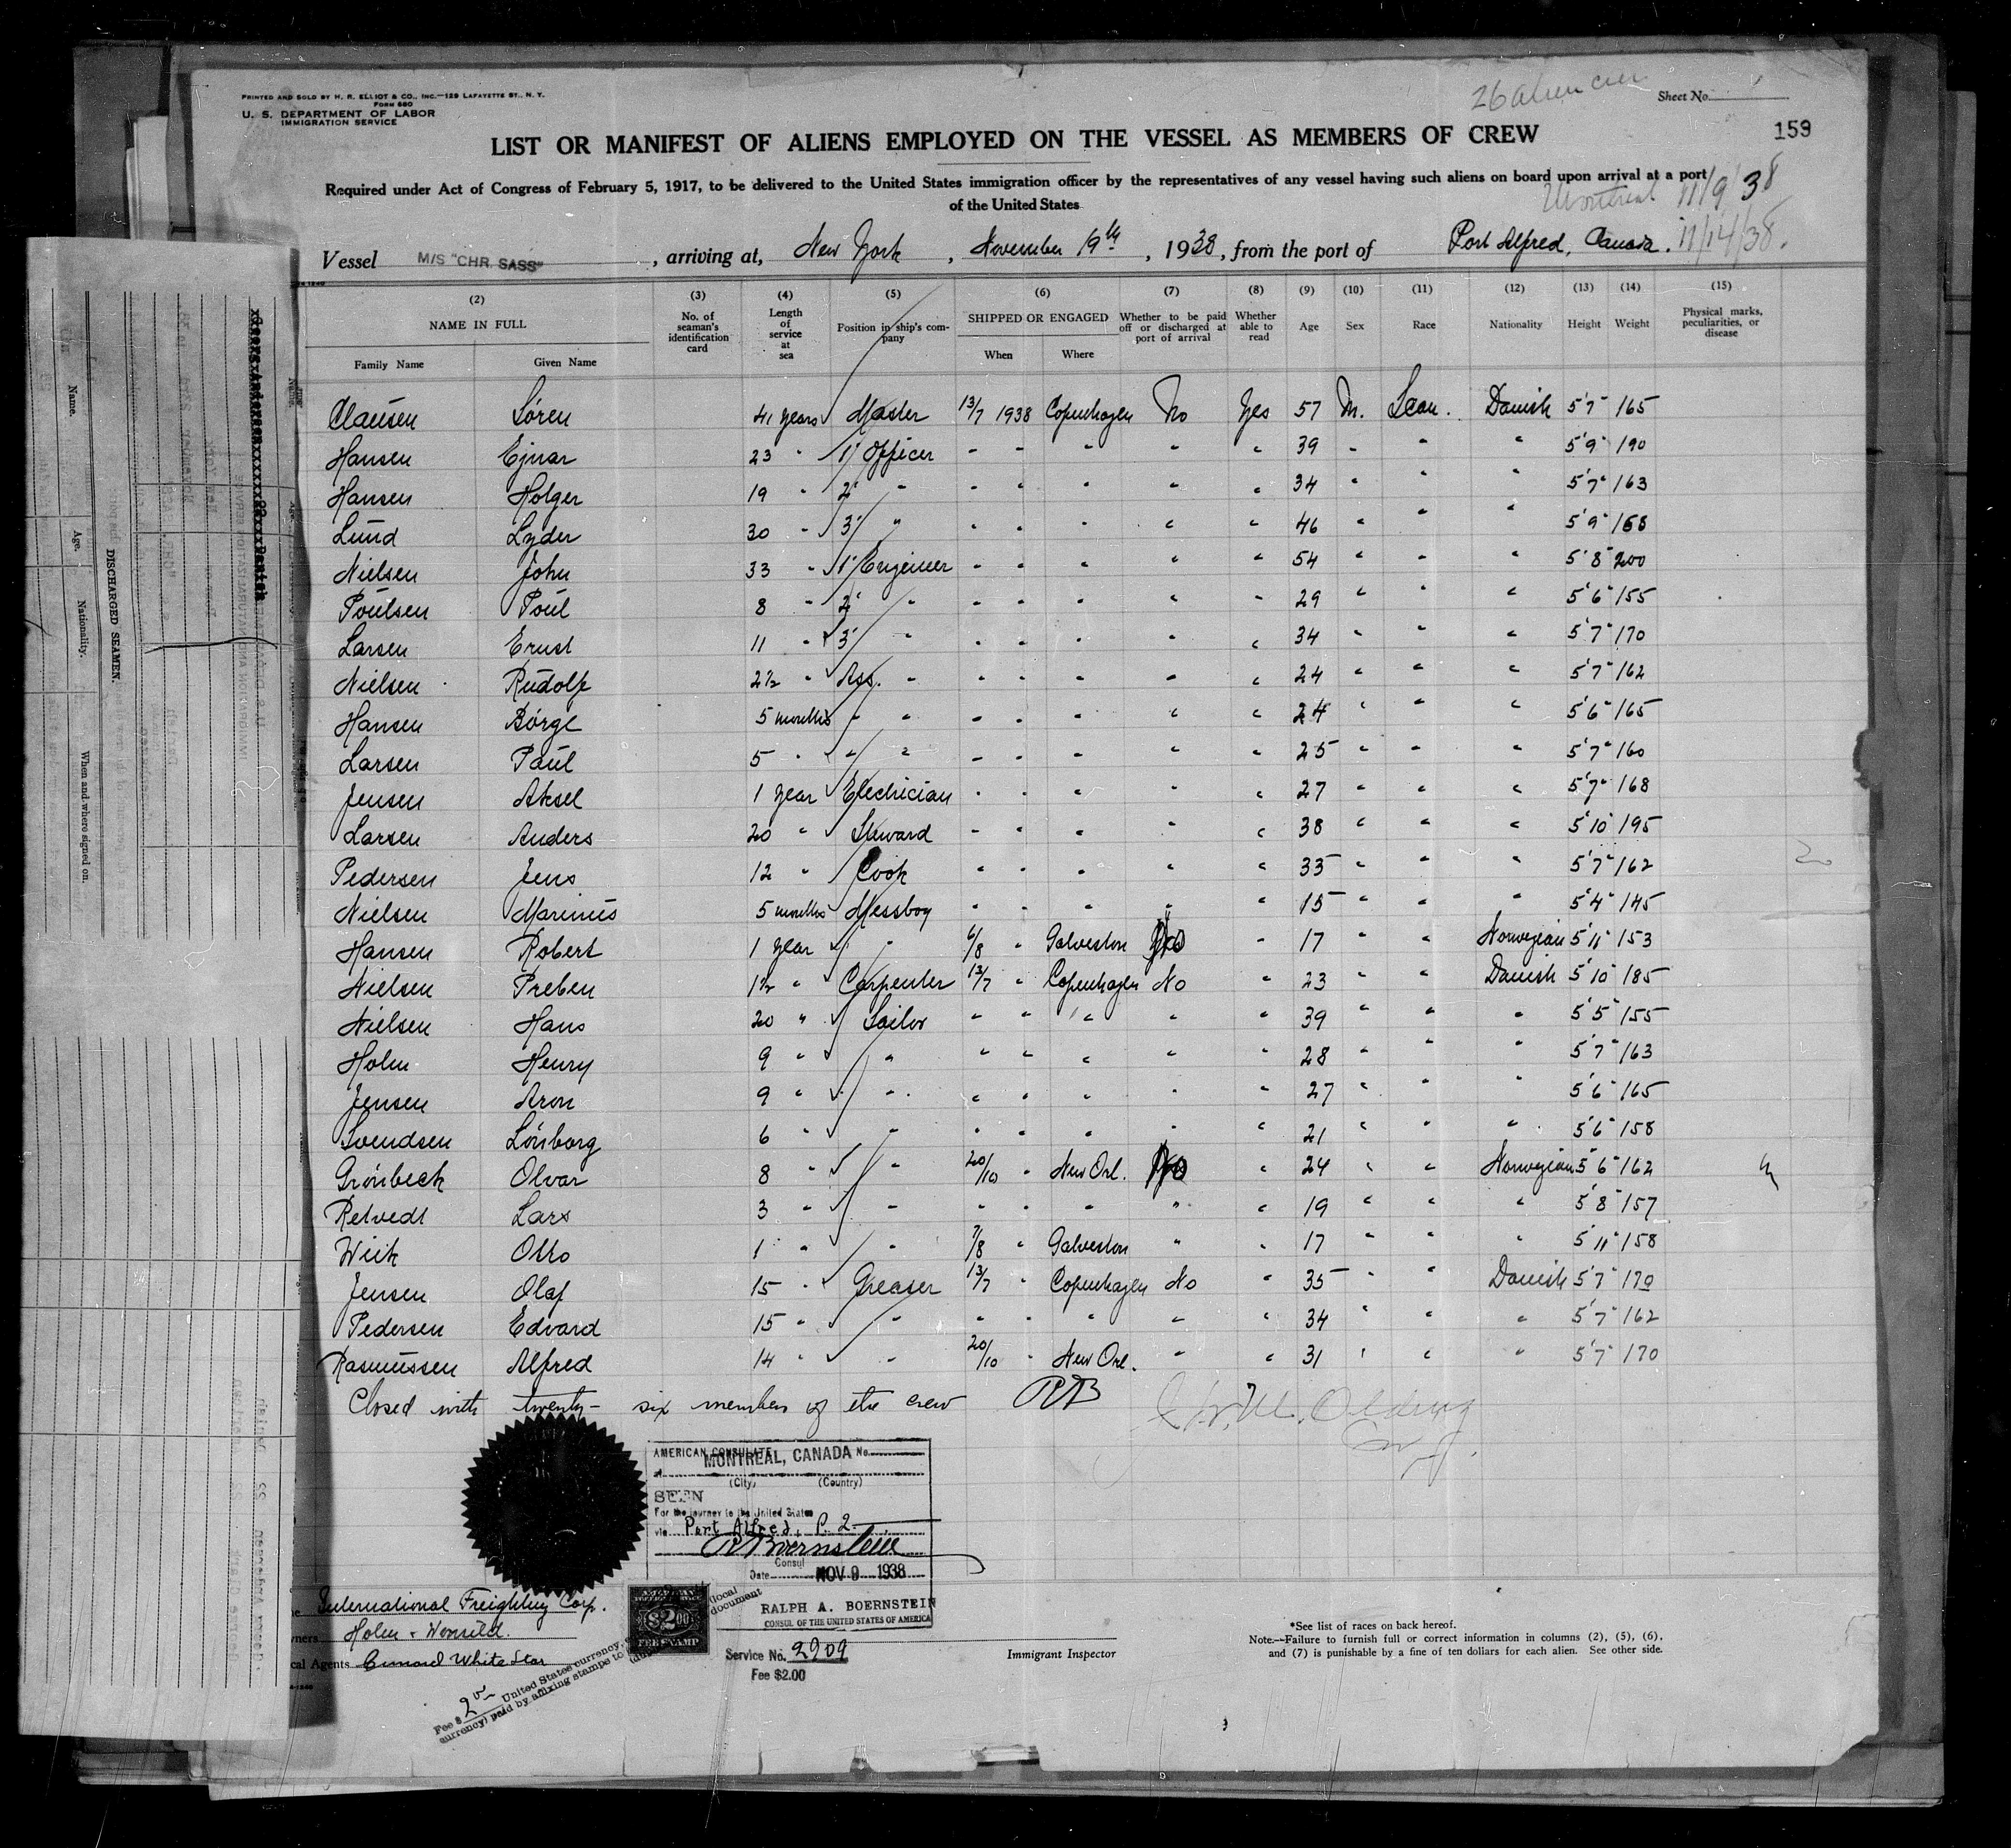 PRINTED AND SOLD BY H. R. ELLIOT & CO., INC.—129 LAFAYETTE ST., N. Y.
FORM 680
U. S. DEPARTMENT OF LABOR
IMMIGRATION SERVICE
26 alien crew
Sheet No.
159
LIST OR MANIFEST OF ALIENS EMPLOYED ON THE VESSEL AS MEMBERS OF CREW
Required under Act of Congress of February 5, 1917, to be delivered to the United States immigration officer by the representatives of any vessel having such aliens on board upon arrival at a port
of the United States
Montreal 11/9/38
Vessel M/S "CHR. SASS", arriving at, New York, November 19th, 1938, from the port of Port Alfred, Canada. 11/14/38.
(2) (3) (4) (5) (6) (7) (8) (9) (10) (11) (12) (13) (14) (15)
NAME IN FULL No. of seaman's identification card Length of service at sea Position in ship's company SHIPPED OR ENGAGED Whether to be paid off or discharged at port of arrival Whether able to read Age Sex Race Nationality Height Weight Physical marks, peculiarities, or disease
Family Name Given Name When Where
Clausen Sören 41 years Master 13/7 1938 Copenhagen No Yes 57 M. Scan. Danish 5'7" 165
Hansen Ejnar 23 " 1' Officer " " " " " 39 " " " 5'9" 190
Hansen Holger 19 " 2' " " " " " " 34 " " " 5'7" 163
Lund Lyder 30 " 3' " " " " " " 46 " " " 5'9" 168
Nielsen John 33 " 1' Engineer " " " " " 54 " " " 5'8" 200
Poulsen Poul 8 " 2' " " " " " " 29 " " " 5'6" 155
Larsen Ernst 11 " 3' " " " " " " 34 " " " 5'7" 170
Nielsen Rudolf 2½ " Ass. " " " " " " 24 " " " 5'7" 162
Hansen Börge 5 months " " " " " " " 24 " " " 5'6" 165
Larsen Paul 5 " " " " " " " " 25 " " " 5'7" 160
Jensen Aksel 1 year Electrician " " " " " 27 " " " 5'7" 168
Larsen Anders 20 " Steward " " " " " 38 " " " 5'10" 195
Pedersen Jens 12 " Cook " " " " " 33 " " " 5'7" 162
Nielsen Marinus 5 months Messboy " " " " " 15 " " " 5'4" 145
Hansen Robert 1 year " 6/8 " Galveston " 17 " " Norwegian 5'11" 153
Nielsen Preben 1½ " Carpenter 13/7 " Copenhagen No " 23 " " Danish 5'10" 185
Nielsen Hans 20 " Sailor " " " " " 39 " " " 5'5" 155
Holm Henry 9 " " " " " " " 28 " " " 5'7" 163
Jensen Aron 9 " " " " " " " 27 " " " 5'6" 165
Svendsen Lönborg 6 " " " " " " " 21 " " " 5'6" 158
Grönbeck Olvar 8 " " 20/10 " New Orl. " 24 " " Norwegian 5'6" 162
Retvedt Lars 3 " " " " " " " 19 " " " 5'8" 157
Wiik Otto 1 " " 7/8 " Galveston " " 17 " " " 5'11" 158
Jensen Olaf 15 " Greaser 13/7 " Copenhagen No " 35 " " Danish 5'7" 170
Pedersen Edvard 15 " " " " " " " 34 " " " 5'7" 162
Rasmussen Alfred 14 " " 20/10 " New Orl. " " 31 " " " 5'7" 170
Closed with twenty-six members of the crew RAB
AMERICAN CONSULATE No.
at MONTREAL, CANADA
(City) (Country)
SEEN
For the journey to the United States
via Port Alfred, P. Q.
RABoernstein
Consul
Date NOV 9 1938
RALPH A. BOERNSTEIN
CONSUL OF THE UNITED STATES OF AMERICA
Service No. 2909
Fee $2.00
$2.00
FEE STAMP
International Freighting Corp.
Holm & Wonsild.
Agents Cunard White Star
Fee $ 2.00 United States currency.
Immigrant Inspector
*See list of races on back hereof.
Note.—Failure to furnish full or correct information in columns (2), (5), (6),
and (7) is punishable by a fine of ten dollars for each alien. See other side.
DISCHARGED SEAMEN.
Name. Age. Nationality. When and where signed on.